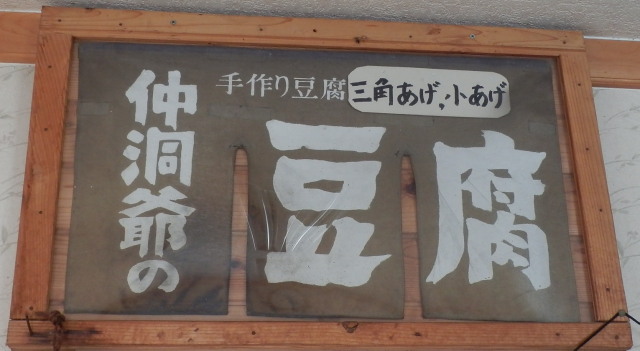 仲洞爺の
手作り豆腐
三角あげ,小あげ
豆腐